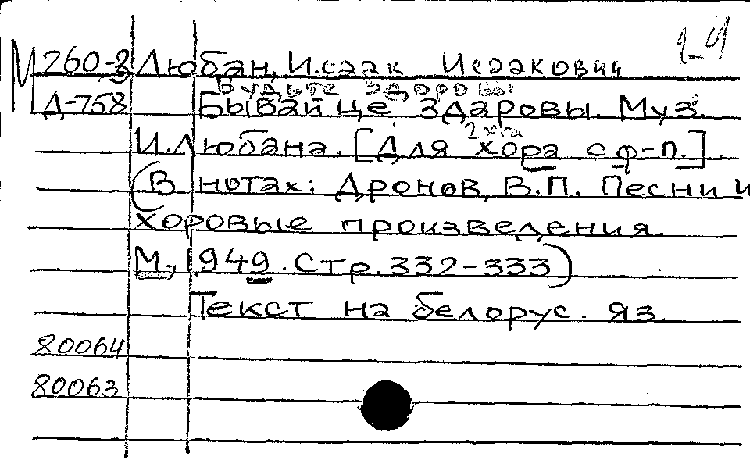 1-4
М 260-8 Любан, Исаак Исаакович
Будьте здоровы
Д-758 Бывайце здаровы. Муз.
И. Любана. [Для хора с ф-п.].
(В нотах: Дронов, В.П. Песни и
хоровые произведения.
М., 1949. Стр. 332-333)
Текст на белорус. яз.
80064
80063